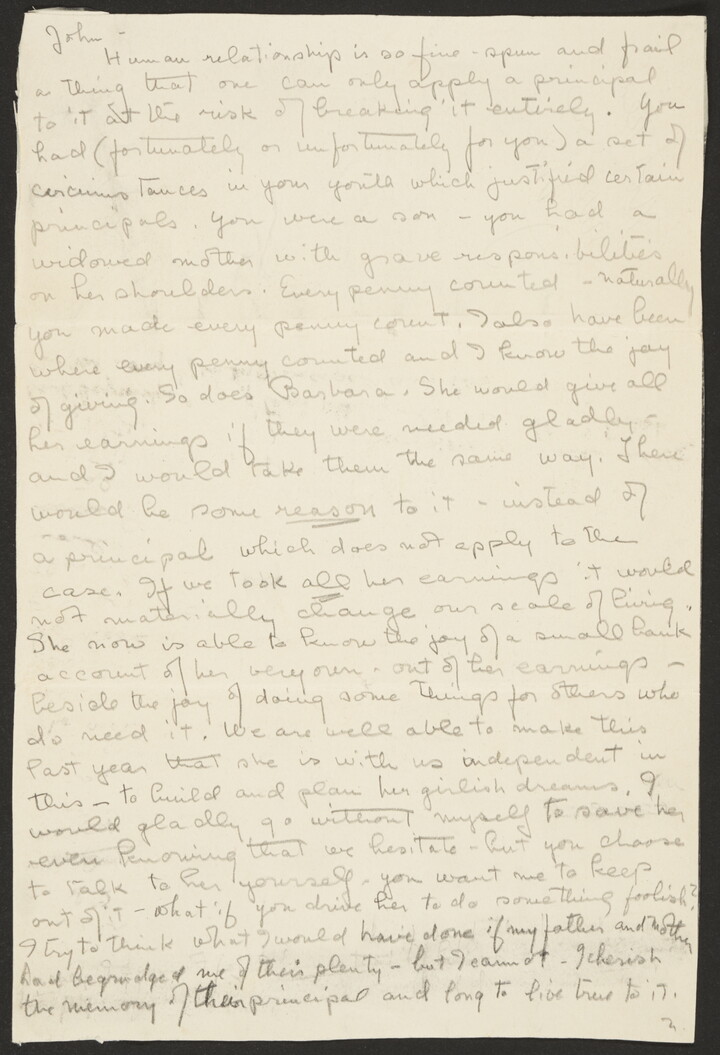 John -
Human relationship is so fine-spun and frail
a thing that one can only apply a principal
to it at the risk of breaking it entirely. You
had (fortunately or unfortunately for you) a set of
circumstances in your youth which justified certain
principals. You were a son - you had a
widowed mother with grave responsibilities
on her shoulders. Every penny counted - naturally
you made every penny count. I also have been
where every penny counted and I know the joy
of giving. So does Barbara. She would give all
her earnings if they were needed gladly -
and I would take them the same way. There
would be some reason to it - instead of
a principal which does not apply to the
case. If we took all her earnings it would
not materially change our scale of living.
She now is able to know the joy of a small bank
account of her very own - out of her earnings -
beside the joy of doing some things for others who
do need it. We are well able to make this
last year that she is with us independent in
this - to build and plan her girlish dreams. I
would gladly go without myself to save her
even knowing that we hesitate - but you choose
to talk to her yourself - you want me to keep
out of it - what if you drive her to do something foolish?
I try to think what I would have done if my father and mother
had begrudged me of their plenty - but I cannot - I cherish
the memory of their principal and long to live true to it.